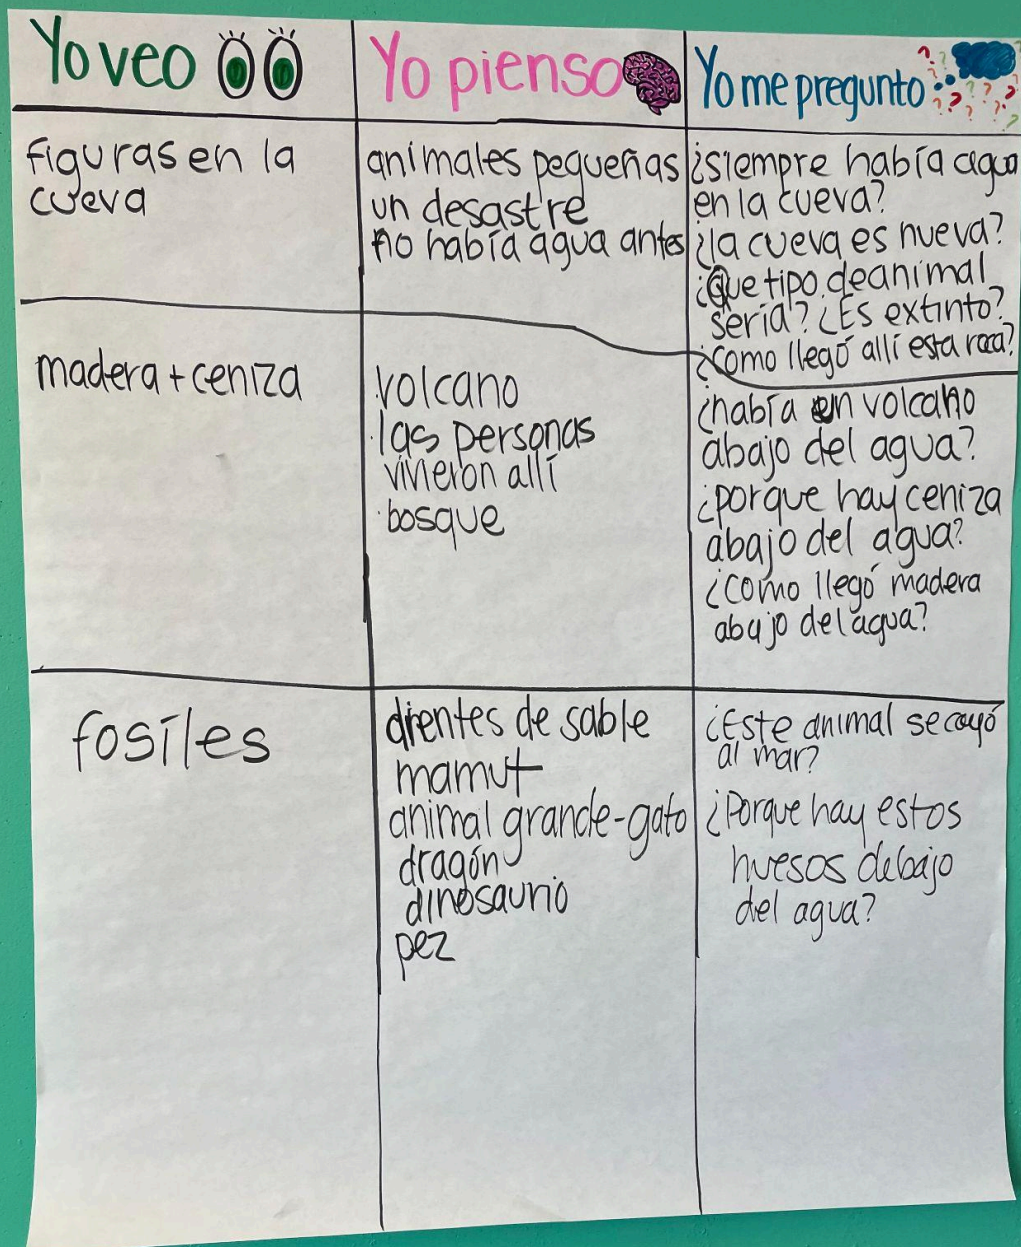 Yo veo
Yo pienso
Yo me pregunto
figuras en la
cueva
animales pequeñas
un desastre
no había agua antes
¿siempre había agua
en la cueva?
¿la cueva es nueva?
¿Que tipo de animal
sería? ¿Es extinto?
¿como llegó allí esta roca?
madera + ceniza
·volcano
·las personas
vineron allí
·bosque
¿había un volcano
abajo del agua?
¿porque hay ceniza
abajo del agua?
¿como llegó madera
abajo del agua?
fosíles
dientes de sable
mamut
animal grande-gato
dragón
dinosaurio
pez
¿Este animal se cayó
al mar?
¿Porque hay estos
huesos debajo
del agua?